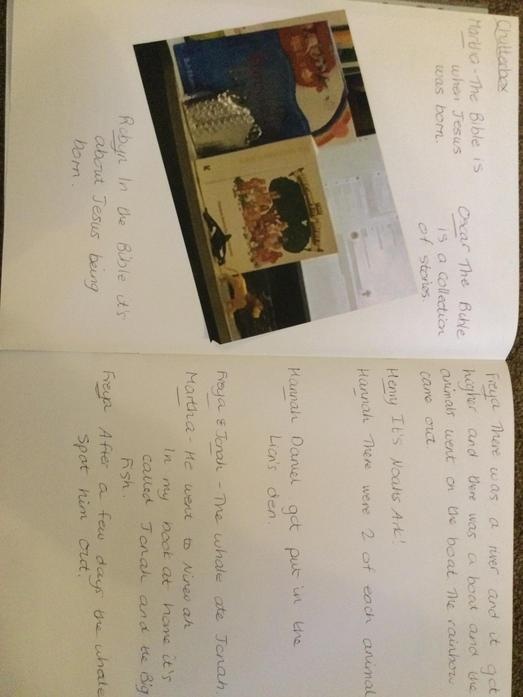 Chatterbox
Martha - The Bible is
when Jesus
was born.
Oscar The Bible
is a collection
of stories.
Robyn In the Bible it's
about Jesus being
born.
Freya There was a river and it got
higher and there was a boat and the
animals went on the boat. The rainbow
came out.
Henry It's Noahs Ark!
Hannah There were 2 of each animal
Hannah Daniel got put in the
Lion's den
Freya & Jonah - The whale ate Jonah.
Martha - He went to Ninevah
In my book at home it's
called Jonah and the Big
Fish.
Freya After a few days the whale
Spat him out.